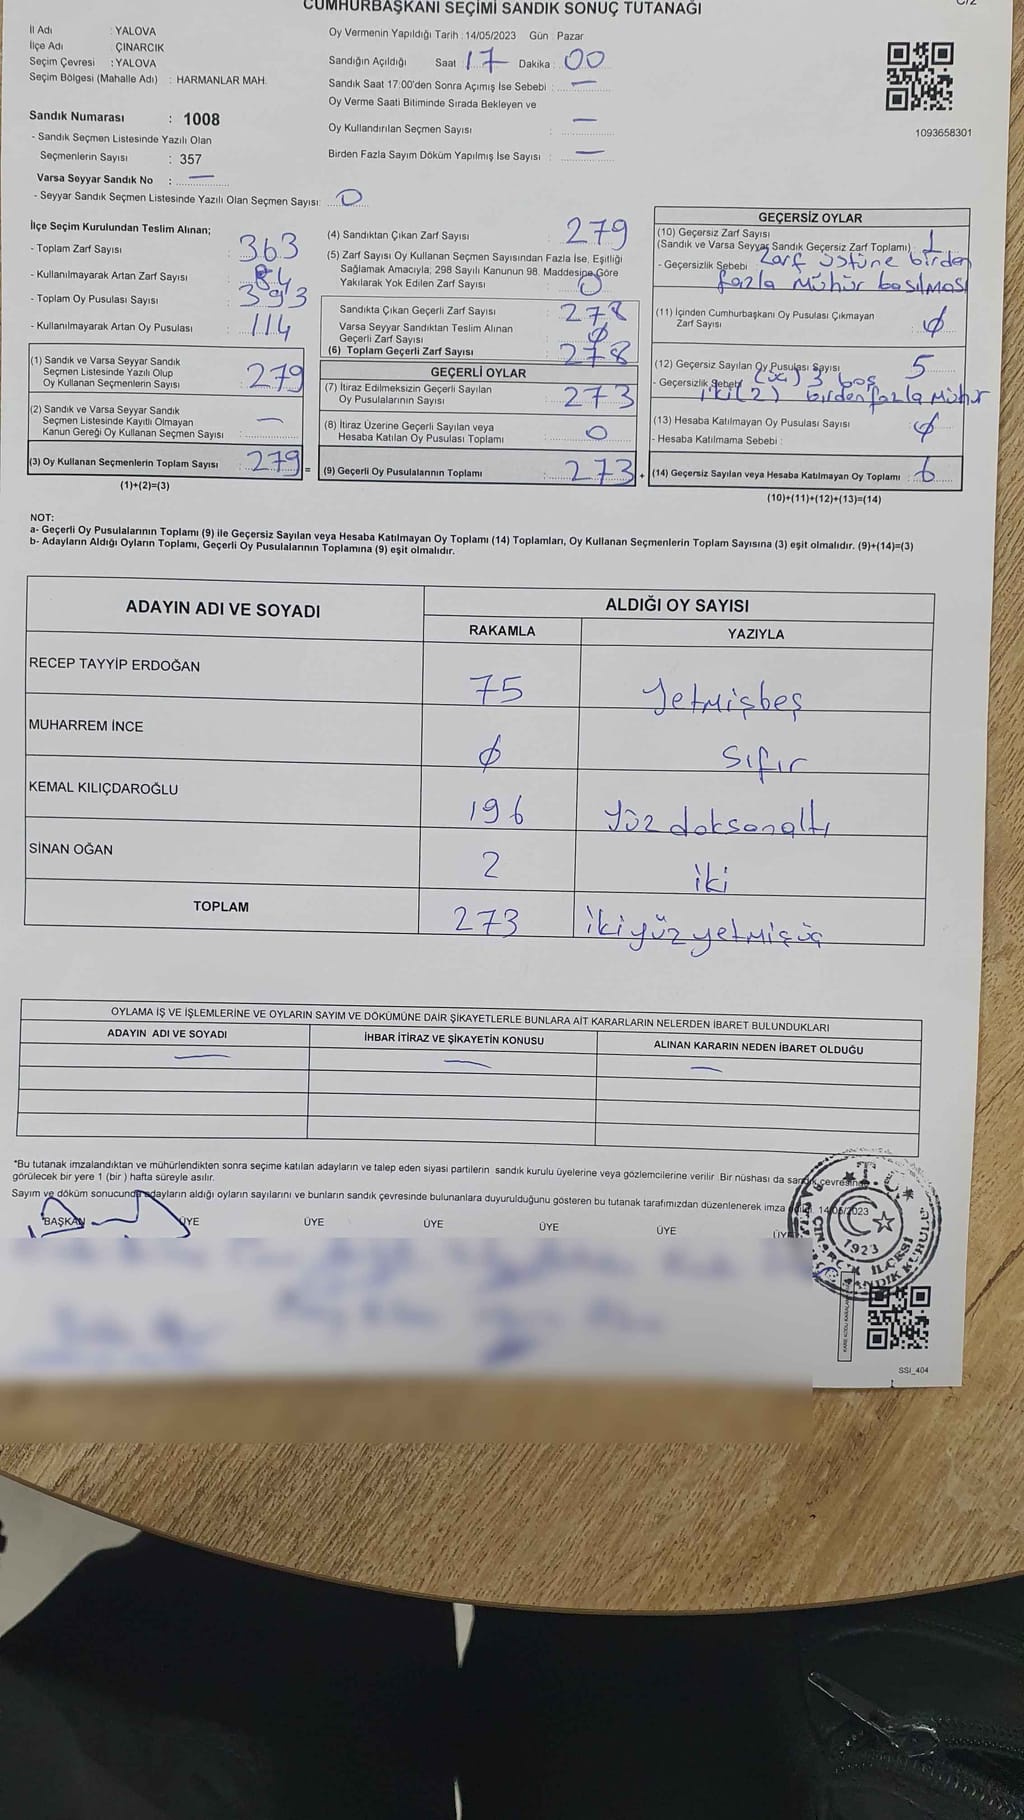 CUMHURBAŞKANI SEÇİMİ SANDIK SONUÇ TUTANAĞI
İl Adı : YALOVA
İlçe Adı : ÇINARCIK
Seçim Çevresi : YALOVA
Seçim Bölgesi (Mahalle Adı) : HARMANLAR MAH.
Sandık Numarası : 1008
- Sandık Seçmen Listesinde Yazılı Olan
Seçmenlerin Sayısı : 357
Varsa Seyyar Sandık No : —
- Seyyar Sandık Seçmen Listesinde Yazılı Olan Seçmen Sayısı: 0
Oy Vermenin Yapıldığı Tarih : 14/05/2023 Gün : Pazar
Sandığın Açıldığı Saat 17 Dakika : 00
Sandık Saat 17:00'den Sonra Açımış İse Sebebi : —
Oy Verme Saati Bitiminde Sırada Bekleyen ve
Oy Kullandırılan Seçmen Sayısı : —
Birden Fazla Sayım Döküm Yapılmış İse Sayısı : —
1093658301
İlçe Seçim Kurulundan Teslim Alınan;
- Toplam Zarf Sayısı : 363
- Kullanılmayarak Artan Zarf Sayısı : 84
- Toplam Oy Pusulası Sayısı : 393
- Kullanılmayarak Artan Oy Pusulası : 114
(1) Sandık ve Varsa Seyyar Sandık
Seçmen Listesinde Yazılı Olup
Oy Kullanan Seçmenlerin Sayısı : 279
(2) Sandık ve Varsa Seyyar Sandık
Seçmen Listesinde Kayıtlı Olmayan
Kanun Gereği Oy Kullanan Seçmen Sayısı : —
(3) Oy Kullanan Seçmenlerin Toplam Sayısı : 279 =
(1)+(2)=(3)
(4) Sandıktan Çıkan Zarf Sayısı : 279
(5) Zarf Sayısı Oy Kullanan Seçmen Sayısından Fazla İse, Eşitliği
Sağlamak Amacıyla; 298 Sayılı Kanunun 98. Maddesine Göre
Yakılarak Yok Edilen Zarf Sayısı : 0
Sandıkta Çıkan Geçerli Zarf Sayısı : 278
Varsa Seyyar Sandıktan Teslim Alınan
Geçerli Zarf Sayısı : Ø
(6) Toplam Geçerli Zarf Sayısı : 278
GEÇERLİ OYLAR
(7) İtiraz Edilmeksizin Geçerli Sayılan
Oy Pusulalarının Sayısı : 273
(8) İtiraz Üzerine Geçerli Sayılan veya
Hesaba Katılan Oy Pusulası Toplamı : 0
(9) Geçerli Oy Pusulalarının Toplamı : 273 +
GEÇERSİZ OYLAR
(10) Geçersiz Zarf Sayısı
(Sandık ve Varsa Seyyar Sandık Geçersiz Zarf Toplamı) : 1
- Geçersizlik Sebebi Zarf üstüne birden
fazla Mühür basılması
(11) İçinden Cumhurbaşkanı Oy Pusulası Çıkmayan
Zarf Sayısı : Ø
(12) Geçersiz Sayılan Oy Pusulası Sayısı 5
- Geçersizlik Sebebi 3 boş
iki (2) birden fazla Mühür
(13) Hesaba Katılmayan Oy Pusulası Sayısı : Ø
- Hesaba Katılmama Sebebi :
(14) Geçersiz Sayılan veya Hesaba Katılmayan Oy Toplamı : 6
(10)+(11)+(12)+(13)=(14)
NOT:
a- Geçerli Oy Pusulalarının Toplamı (9) ile Geçersiz Sayılan veya Hesaba Katılmayan Oy Toplamı (14) Toplamları, Oy Kullanan Seçmenlerin Toplam Sayısına (3) eşit olmalıdır. (9)+(14)=(3)
b- Adayların Aldığı Oyların Toplamı, Geçerli Oy Pusulalarının Toplamına (9) eşit olmalıdır.
ADAYIN ADI VE SOYADI ALDIĞI OY SAYISI
RAKAMLA YAZIYLA
RECEP TAYYİP ERDOĞAN 75 Yetmişbeş
MUHARREM İNCE Ø Sıfır
KEMAL KILIÇDAROĞLU 196 Yüz doksanaltı
SİNAN OĞAN 2 iki
TOPLAM 273 ikiyüzyetmişüç
OYLAMA İŞ VE İŞLEMLERİNE VE OYLARIN SAYIM VE DÖKÜMÜNE DAİR ŞİKAYETLERLE BUNLARA AİT KARARLARIN NELERDEN İBARET BULUNDUKLARI
ADAYIN ADI VE SOYADI İHBAR İTİRAZ VE ŞİKAYETİN KONUSU ALINAN KARARIN NEDEN İBARET OLDUĞU
— — —
*Bu tutanak imzalandıktan ve mühürlendikten sonra seçime katılan adayların ve talep eden siyasi partilerin sandık kurulu üyelerine veya gözlemcilerine verilir. Bir nüshası da sandık çevresinde
görülecek bir yere 1 (bir) hafta süreyle asılır.
Sayım ve döküm sonucunda adayların aldığı oyların sayılarını ve bunların sandık çevresinde bulunanlara duyurulduğunu gösteren bu tutanak tarafımızdan düzenlenerek imza edildi. 14/05/2023
BAŞKAN ÜYE ÜYE ÜYE ÜYE ÜYE ÜYE
T.C.
1923
ÇINARCIK İLÇESİ
SANDIK KURULU
SSI_404